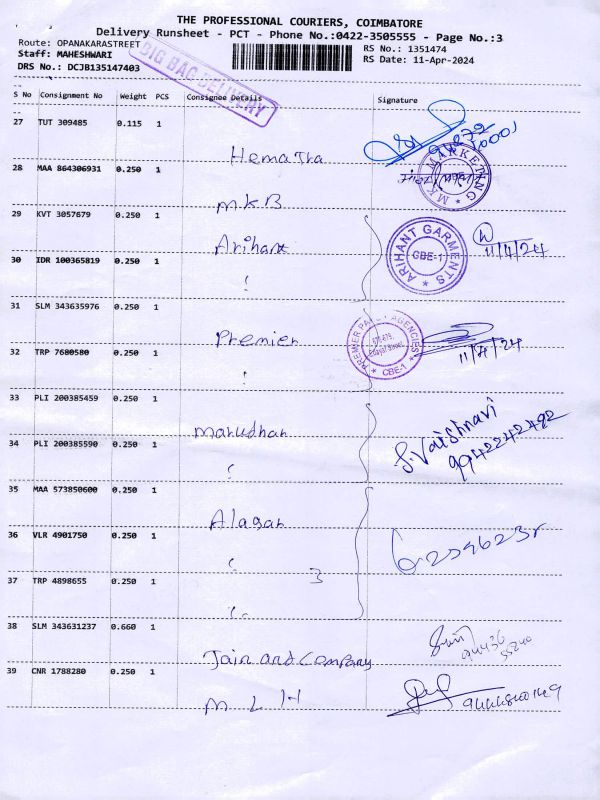 THE PROFESSIONAL COURIERS, COIMBATORE
Delivery Runsheet - PCT - Phone No.:0422-3505555 - Page No.:3
Route: OPANAKARASTREET
RS No.: 1351474
Staff: MAHESHWARI
RS Date: 11-Apr-2024
DRS No.: DCJB135147403
BIG BAG DELIVERY
S No Consignment No Weight PCS Consignee Details Signature
27 TUT 309485 0.115 1
Hematra
28 MAA 864306931 0.250 1
MARKETING
MKB
29 KVT 3057679 0.250 1
Arihant
ARIHANT GARMENTS
CBE-1
11/4/24
30 IDR 100365819 0.250 1
31 SLM 343635976 0.250 1
Premier
PREMIER AGENCIES
CBE-1
11/4/24
32 TRP 7680580 0.250 1
33 PLI 200385459 0.250 1
Marudhar
S. Vaishnavi
9942242482
34 PLI 200385590 0.250 1
35 MAA 573850600 0.250 1
Alagar
36 VLR 4901750 0.250 1
3
37 TRP 4898655 0.250 1
38 SLM 343631237 0.660 1
Jain and Company
39 CNR 1788280 0.250 1
M L H